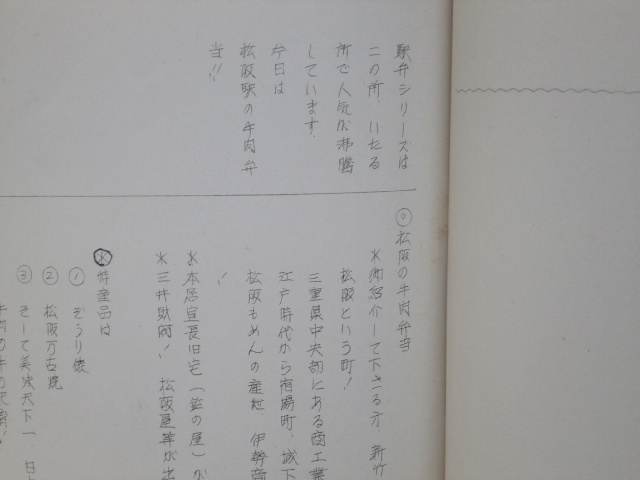 駅弁シリーズは
この所、いたる
所で人気が沸騰
しています。
今日は
松阪駅の牛肉弁
当!!
松阪の牛肉弁当
*御紹介して下さる方、新竹
松阪という町!
三重県中央部にある商工業
江戸時代から宿場町、城下
松阪もめんの産地 伊勢商
!
*本居宣長旧宅(鈴の屋)が
*三井財閥!! 松阪屋等が出
特産品は
① ぞうり懐
② 松阪万古焼
③ そして美味天下一、日